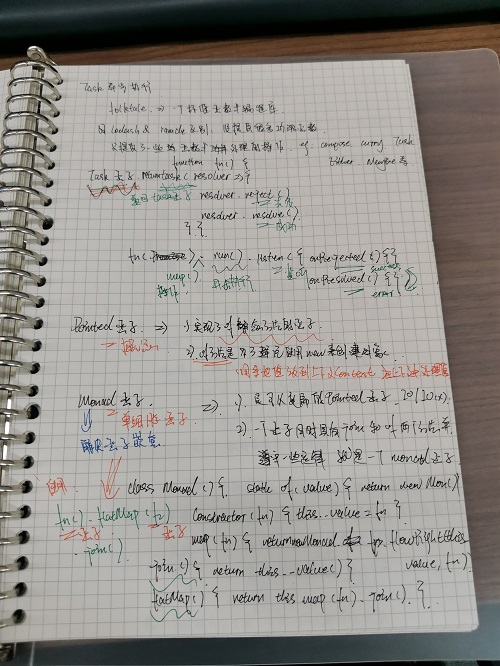 Task 异步执行
folktale => 一个标准函数式编程库
与 lodash & ramda 区别, 没提供很多功能函数
只提供了一些函数式处理的操作 eg: compose curry Task
Either Maybe 等
function fn() {
Task 函子 return task( resolver => {
返回 task函子 resolver.reject() 失败
resolver.resolve() 成功
} }
fn( ). run() . listen ( { onRejected () {}
map() 执行 onResolved () { }
Pointed 函子 => 1) 实现了 of 静态方法的函子
2) of方法是为了避免使用 new 来创建对象
Monad 函子 => 1). 是可以变扁的 Pointed 函子 IO(IO(x))
单细胞函子
解决函子嵌套 2). 一个函子同时具有 join 和 of 两个方法 并
遵守一些定律 就是一个 monad 函子
class Monad () { static of (value) { return new Mon()
fn() . flatMap (f2) Constructor (fn) { this._value = fn }
函子 函子 map (fn) { return new Monad fp.flowRight(this._value, fn)
. join() join() { return this._value() }
flatMap() { return this.map (fn) . join() . }